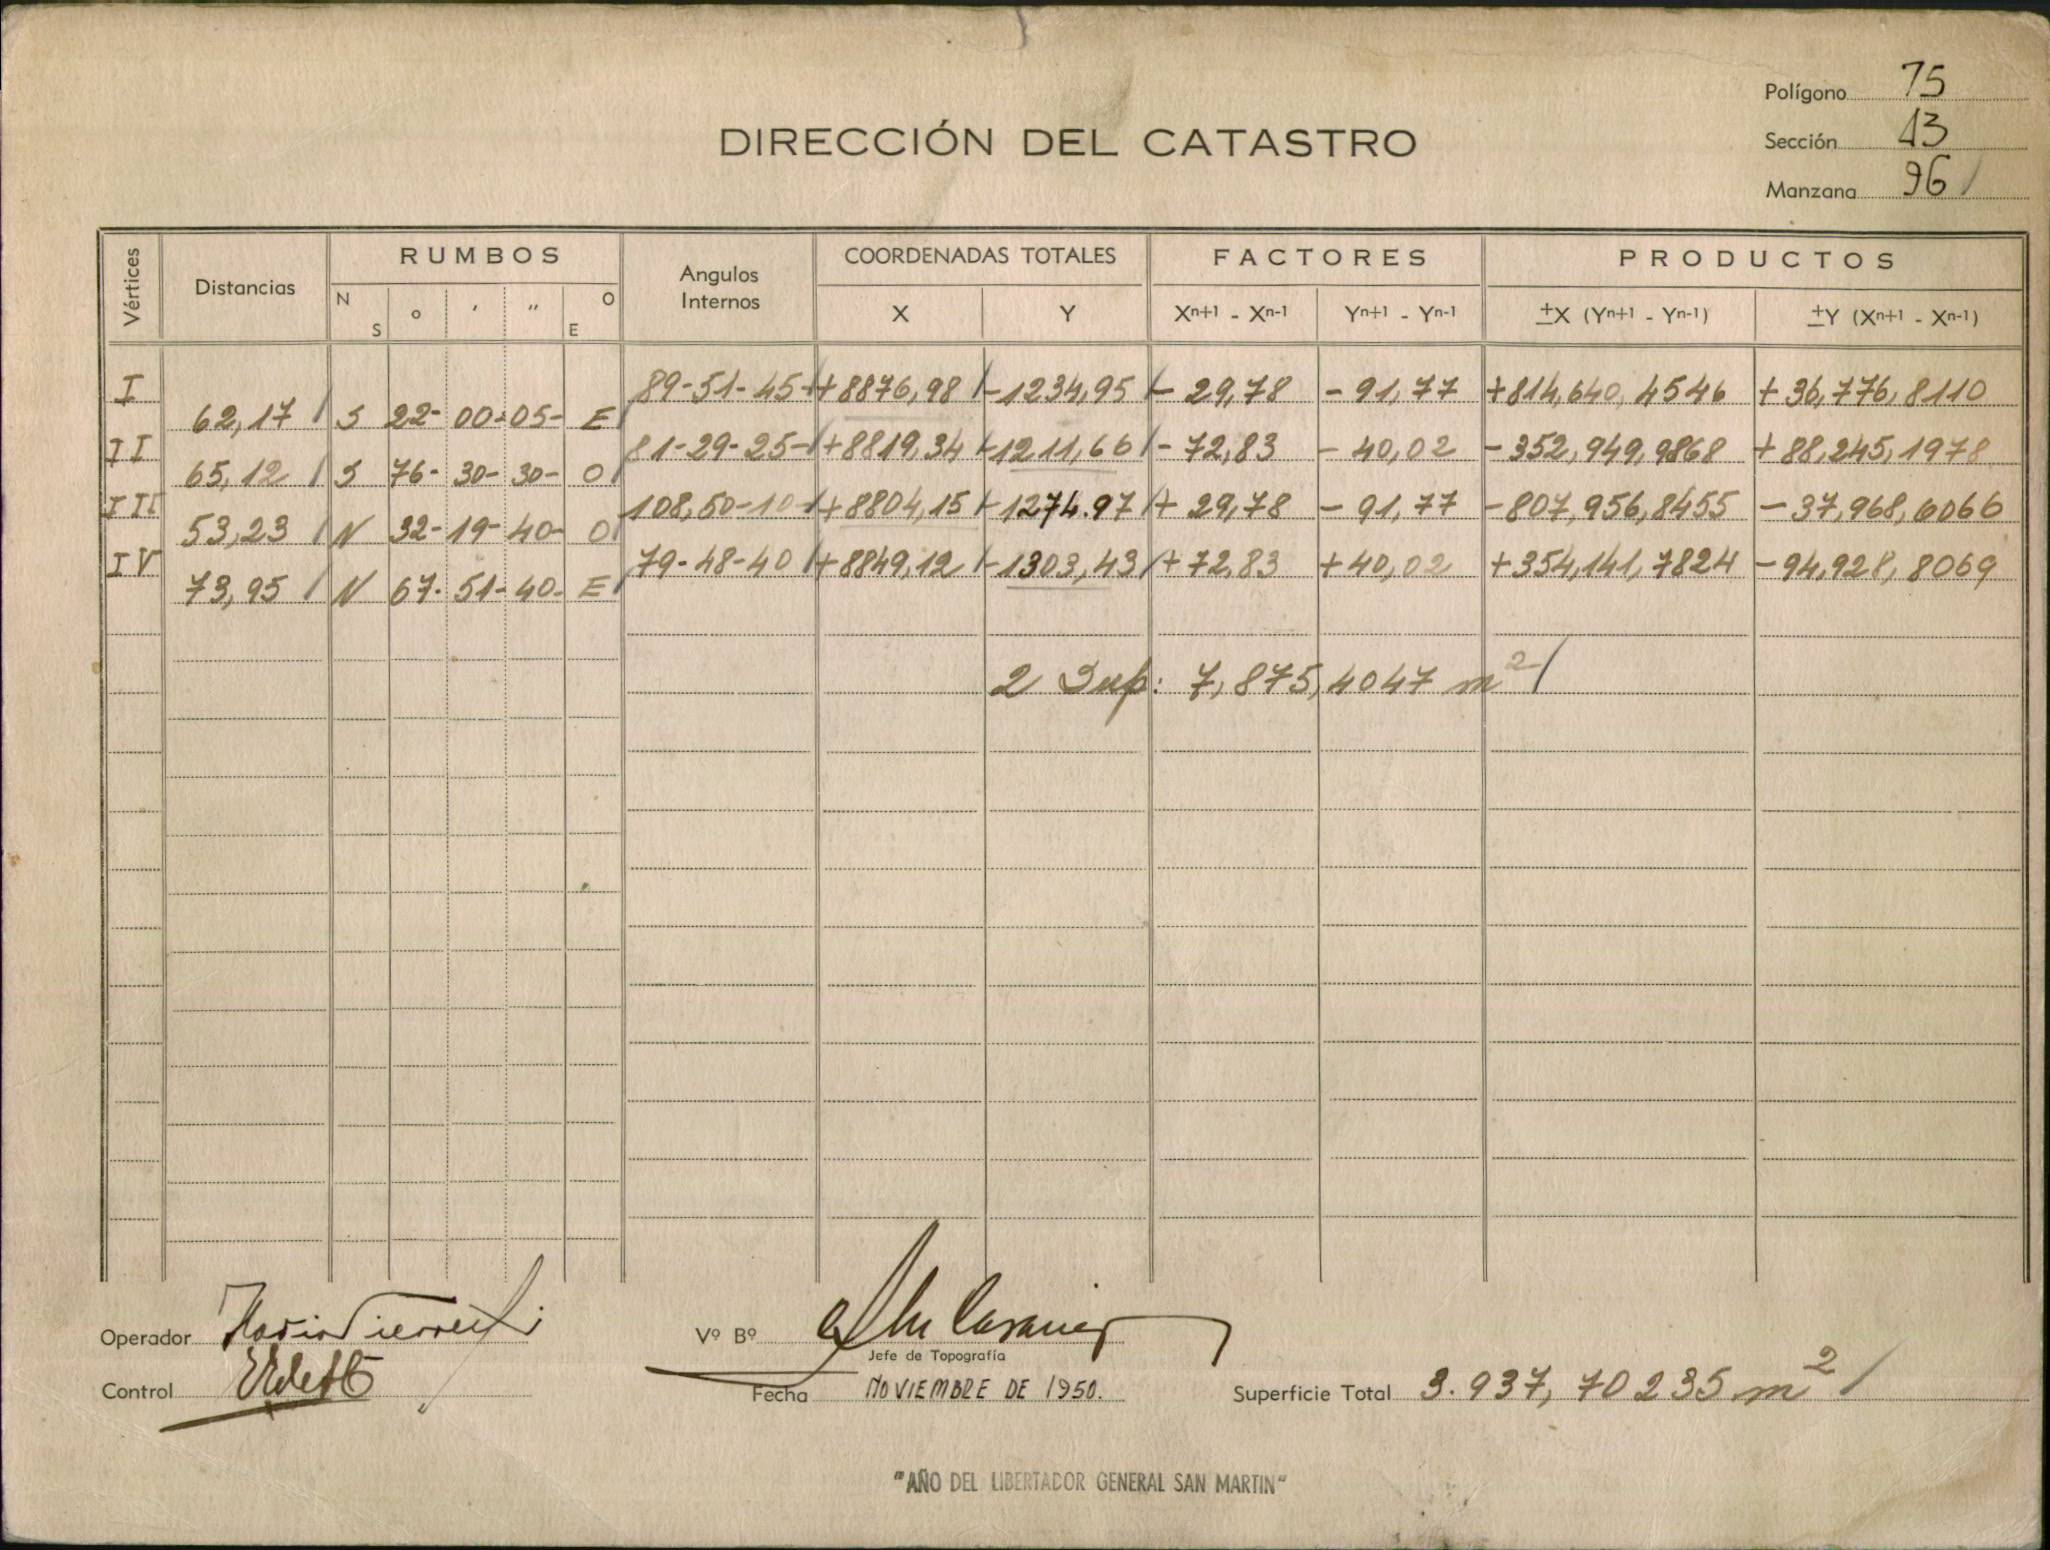 Polígono 75
DIRECCIÓN DEL CATASTRO
Sección 13
Manzana 96
Vértices Distancias RUMBOS Angulos Internos COORDENADAS TOTALES FACTORES PRODUCTOS
N S ° ' " O E X Y Xn+1 - Xn-1 Yn+1 - Yn-1 ±X (Yn+1 - Yn-1) ±Y (Xn+1 - Xn-1)
I 89-51-45- +8876,98 -1234,95 - 29,78 - 91,77 +814,640,4546 + 36,776,8110
62,17 S 22- 00- 05- E
II 81-29-25- +8819,34 -1211,66 - 72,83 - 40,02 -352,949,9868 + 88,245,1978
65,12 S 76- 30- 30- O
III 108,50-10- +8804,15 -1274.97 + 29,78 - 91,77 -807,956,8455 - 37,968,6066
53,23 N 32- 19- 40- O
IV 79-48-40 +8849,12 -1303,43 +72,83 +40,02 +354,141,7824 -94,928,8069
73,95 N 67- 51- 40- E
2 Sup: 7,875,4047 m2
Operador
Vº Bº
Jefe de Topografía
Control
Fecha NOVIEMBRE DE 1950.
Superficie Total 3.937,70235 m2
"AÑO DEL LIBERTADOR GENERAL SAN MARTIN"